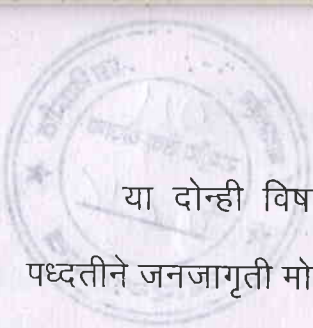 या दोन्ही विष
पध्दतीने जनजागृती मो